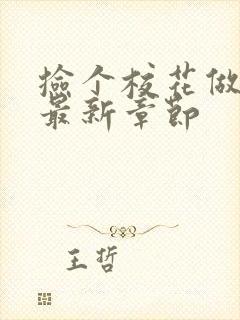 捡个校花做
最新章节
王哲